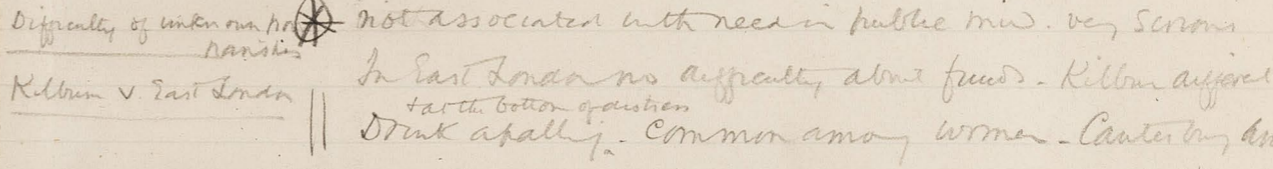 Difficulty of unknown poor
parishes
not associated with need in public mind. very serious
Kilburn v. East London
In East London no difficulty about funds - Kilburn different
& at the bottom of distress
Drink apalling. Common among women - Canterbury